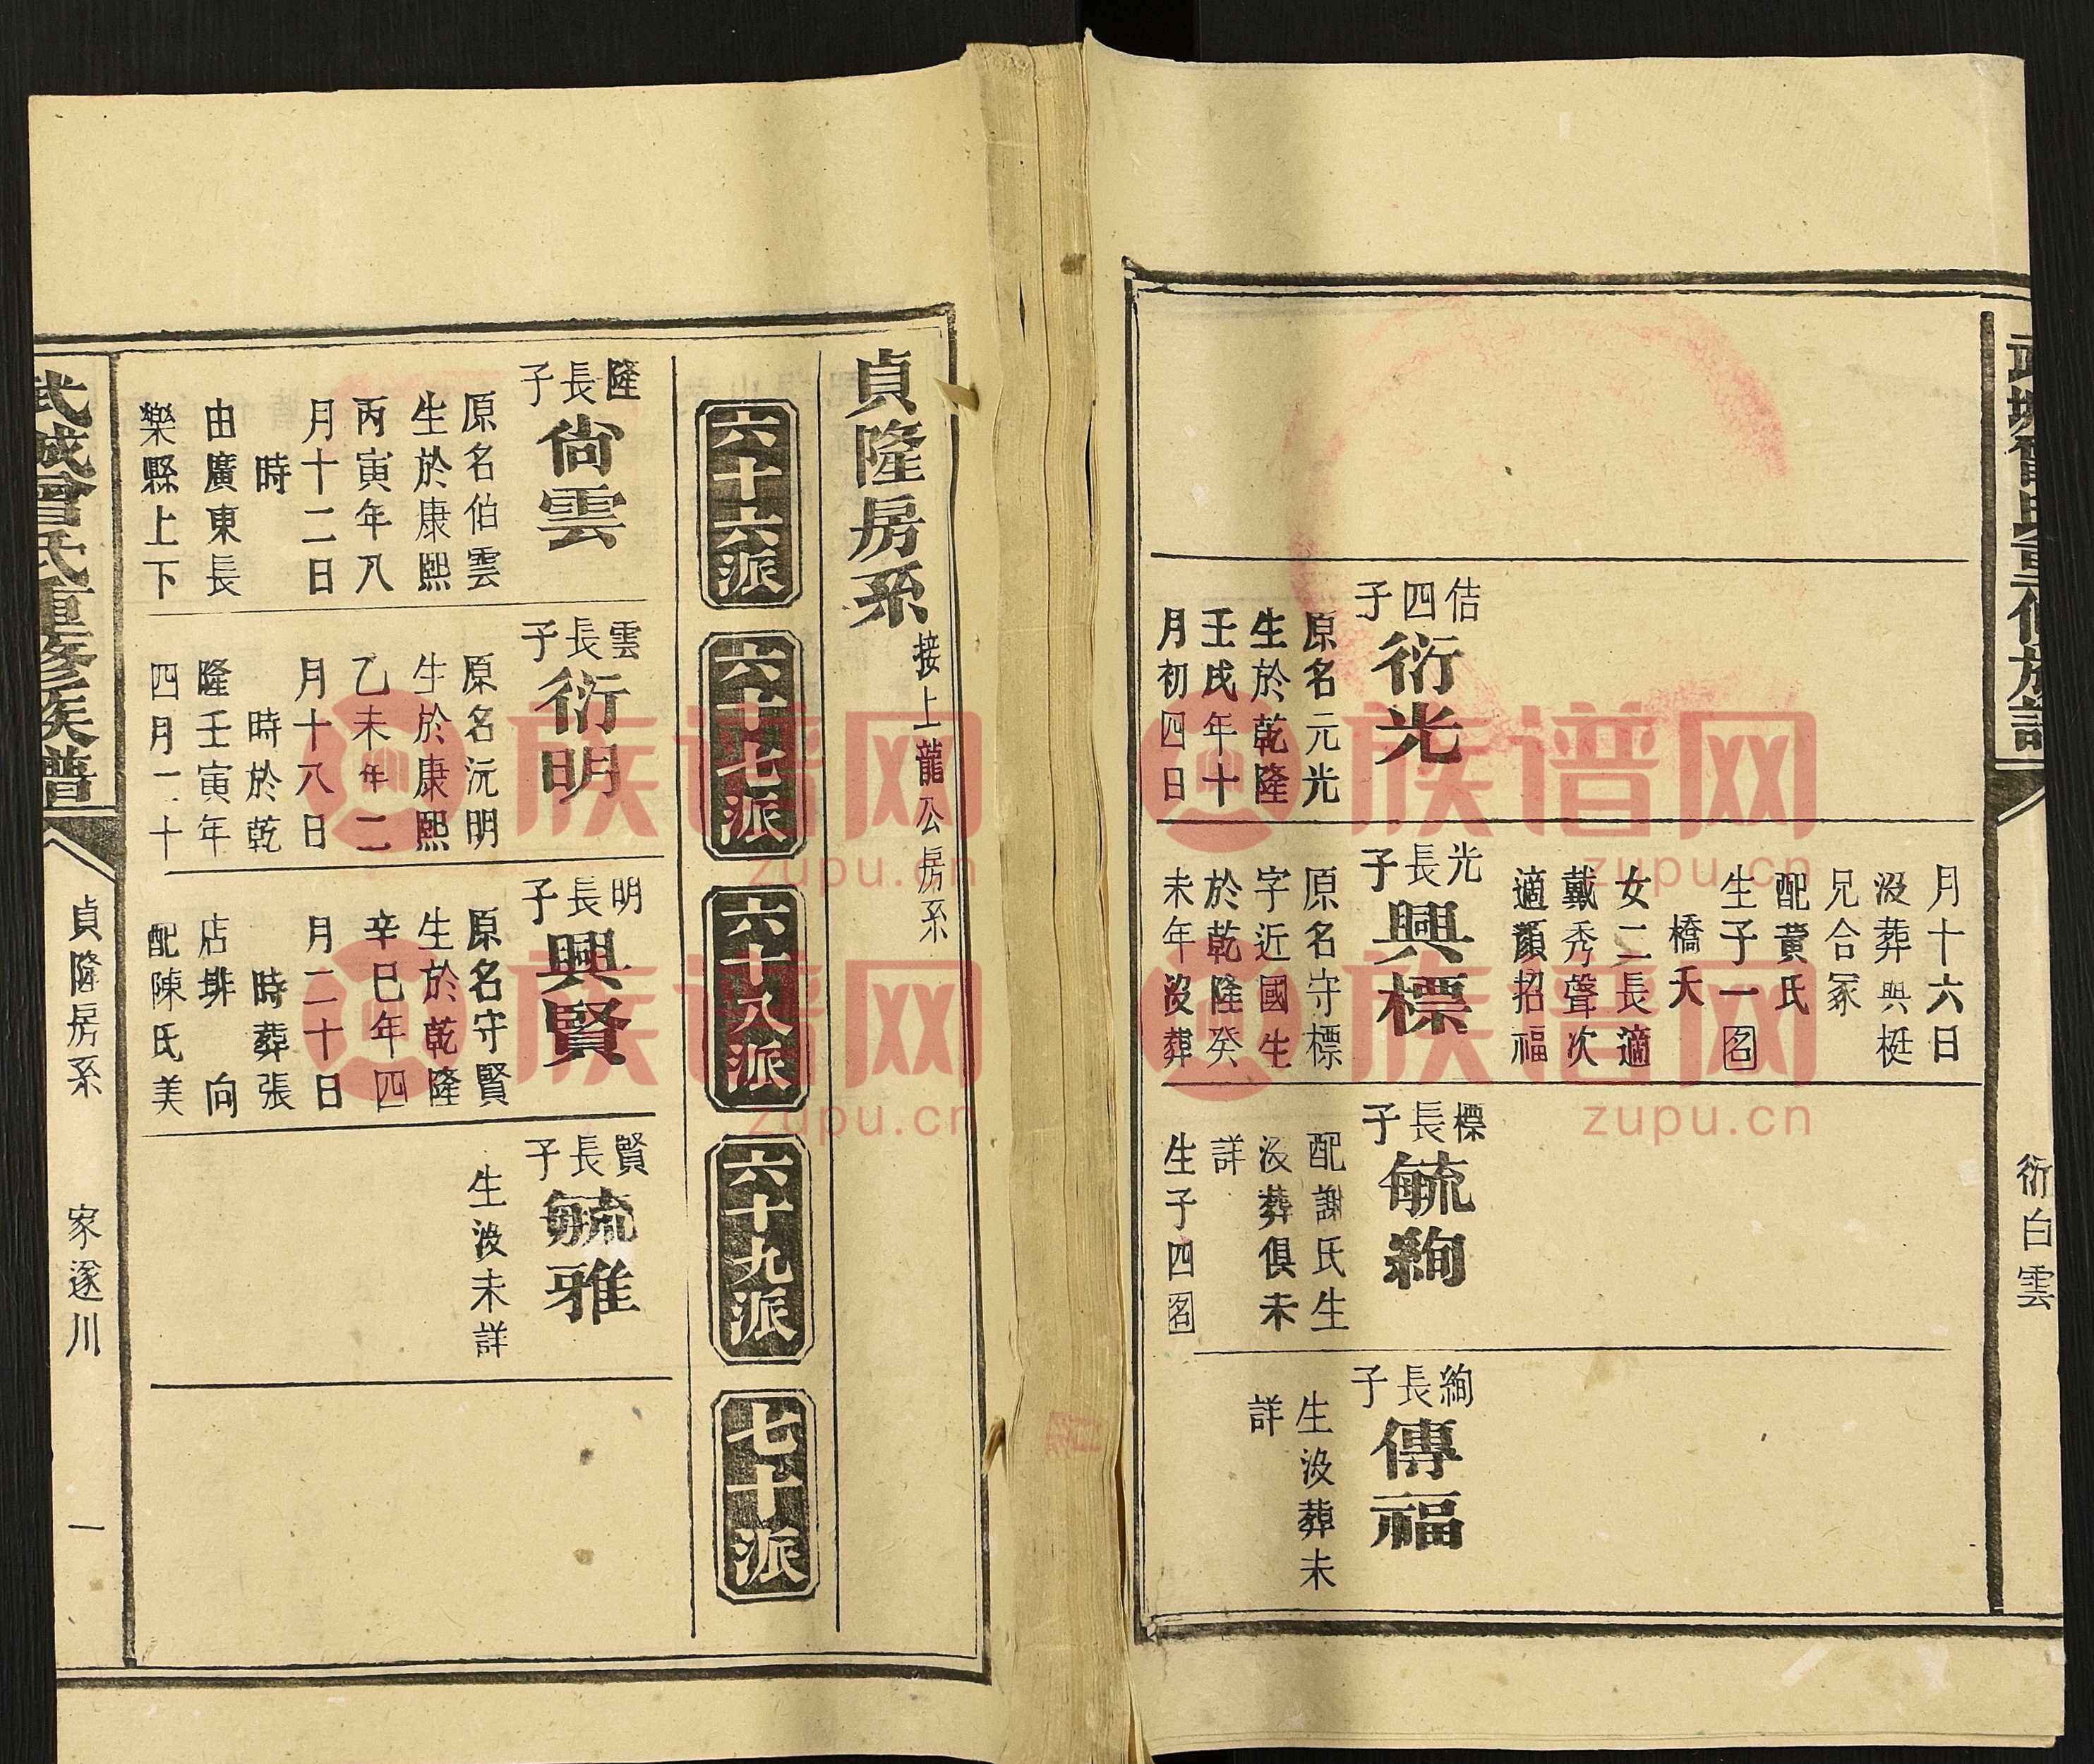 衍白雲
月十六日
沒葬興梃
兄合冢
配黄氏
生子一囹
橋夭
女二長適
戴秀聲次
適顏招福
佶四子
衍光
原名元光
生於乾隆
壬戌年十
月初四日
光長子
興標
原名守標
字近國生
於乾隆癸
未年沒葬
標長子
毓絢
配謝氏生
沒葬俱未
詳
生子四
絢長子
傳福
生沒葬未
詳
貞隆房系
接上龍公房系
六十六派
六十七派
六十八派
六十九派
七十派
隆長子
尙雲
原名伯雲
生於康熙
丙寅年八
月十二日
時
由廣東長
樂縣上下
雲長子
衍明
原名沅明
生於康熙
乙未年二
月十八日
時於乾
隆壬寅年
四月一十
明長子
興賢
原名守賢
生於乾隆
辛巳年四
月二十日
時葬張
店排 向
配陳氏美
賢長子
毓雅
生沒未詳
武城曾氏重修族譜
貞隆房系
家遂川
一
族谱网
zupu.cn
族谱网
zupu.cn
族谱网
zupu.cn
族谱网
zupu.cn